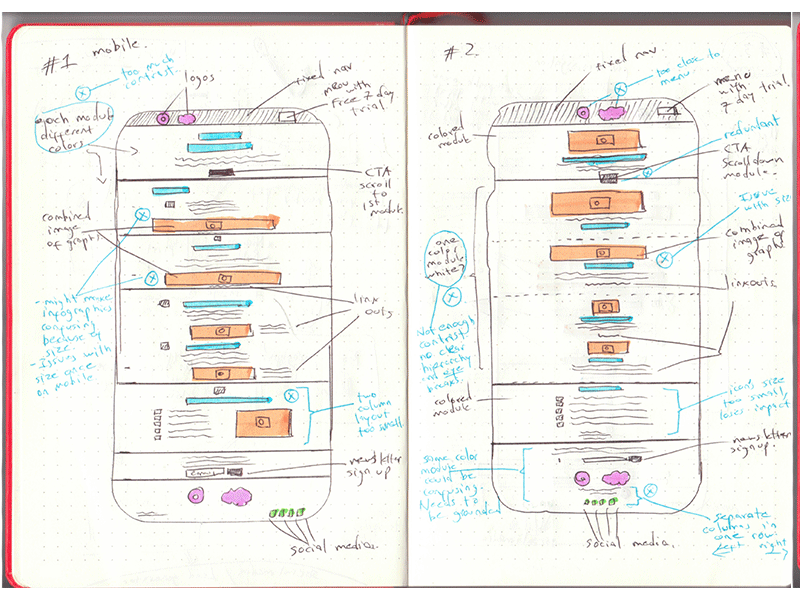 #1 mobile.
too much
contrast.
logos
fixed nav
menu with
Free 7 day
trial
each module
different
colors
CTA
scroll
to
1st
module.
combined
image
of graph
link
outs
- might make
infographics
confusing
because of
size.
- Issues with
size once
on mobile
two
column
layout
too small.
newsletter
sign up
social media.
#2.
fixed nav.
too close to
menu
menu
with
7 day trial.
colored
module
redundant
CTA
scrolldown
module.
Issue
with size
one
color
module
white?
combined
image of
graph
linkouts
Not enough
contrast.
no clear
hierarchy
and eye
breaks.
colored
module
icons size
too small,
loses impact
newsletter
sign up
same color
module
could be
confusing.
Needs to
be grounded
separate
columns in
one row
left right
social media.